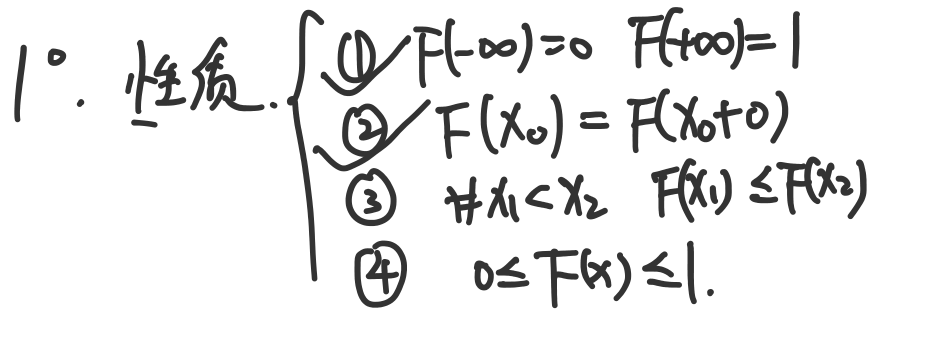 1°. 性质. { ① ✓ F(-∞)=0 F(+∞)=1
② ✓ F(x₀) = F(x₀+0)
③ ∀ x₁<x₂ F(x₁) ≤ F(x₂)
④ 0≤F(x)≤1.